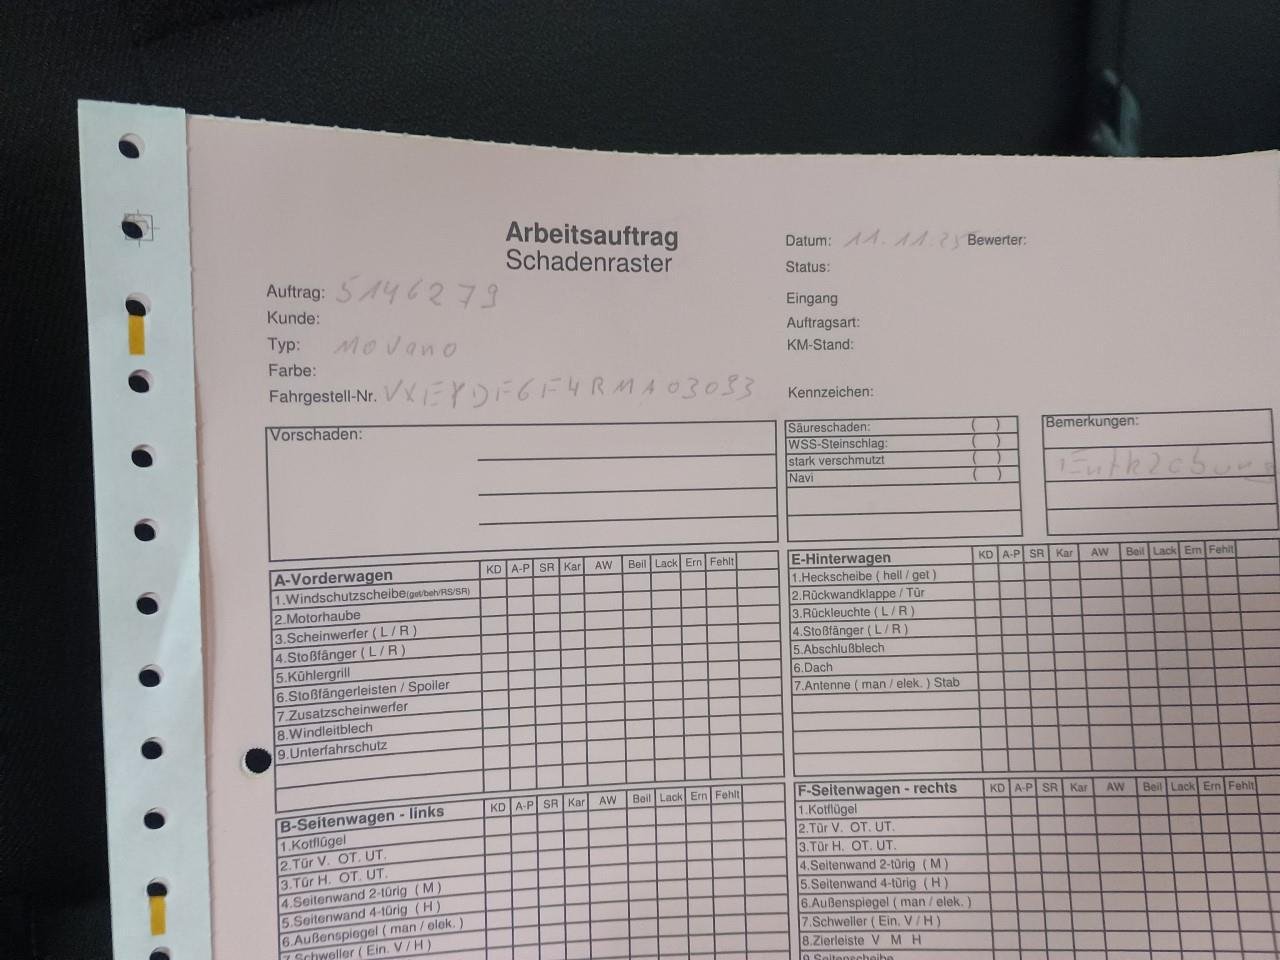 Arbeitsauftrag
Schadenraster
Datum: 11.11.25 Bewerter:
Status:
Auftrag: 5146279
Eingang
Kunde:
Auftragsart:
Typ: Movano
KM-Stand:
Farbe:
Fahrgestell-Nr.
Kennzeichen:
Vorschaden:
Säureschaden: ( )
WSS-Steinschlag: ( )
stark verschmutzt ( )
Navi ( )
Bemerkungen:
Entklebung
A-Vorderwagen KD A-P SR Kar AW Beil Lack Ern Fehlt
1.Windschutzscheibe(get/beh/RS/SR)
2.Motorhaube
3.Scheinwerfer ( L / R )
4.Stoßfänger ( L / R )
5.Kühlergrill
6.Stoßfängerleisten / Spoiler
7.Zusatzscheinwerfer
8.Windleitblech
9.Unterfahrschutz
E-Hinterwagen KD A-P SR Kar AW Beil Lack Ern Fehlt
1.Heckscheibe ( hell / get )
2.Rückwandklappe / Tür
3.Rückleuchte ( L / R )
4.Stoßfänger ( L / R )
5.Abschlußblech
6.Dach
7.Antenne ( man / elek. ) Stab
B-Seitenwagen - links KD A-P SR Kar AW Beil Lack Ern Fehlt
1.Kotflügel
2.Tür V. OT. UT.
3.Tür H. OT. UT.
4.Seitenwand 2-türig ( M )
5.Seitenwand 4-türig ( H )
6.Außenspiegel ( man / elek. )
7.Schweller ( Ein. V / H )
F-Seitenwagen - rechts KD A-P SR Kar AW Beil Lack Ern Fehlt
1.Kotflügel
2.Tür V. OT. UT.
3.Tür H. OT. UT.
4.Seitenwand 2-türig ( M )
5.Seitenwand 4-türig ( H )
6.Außenspiegel ( man / elek. )
7.Schweller ( Ein. V / H )
8.Zierleiste V M H
9.Seitenscheibe